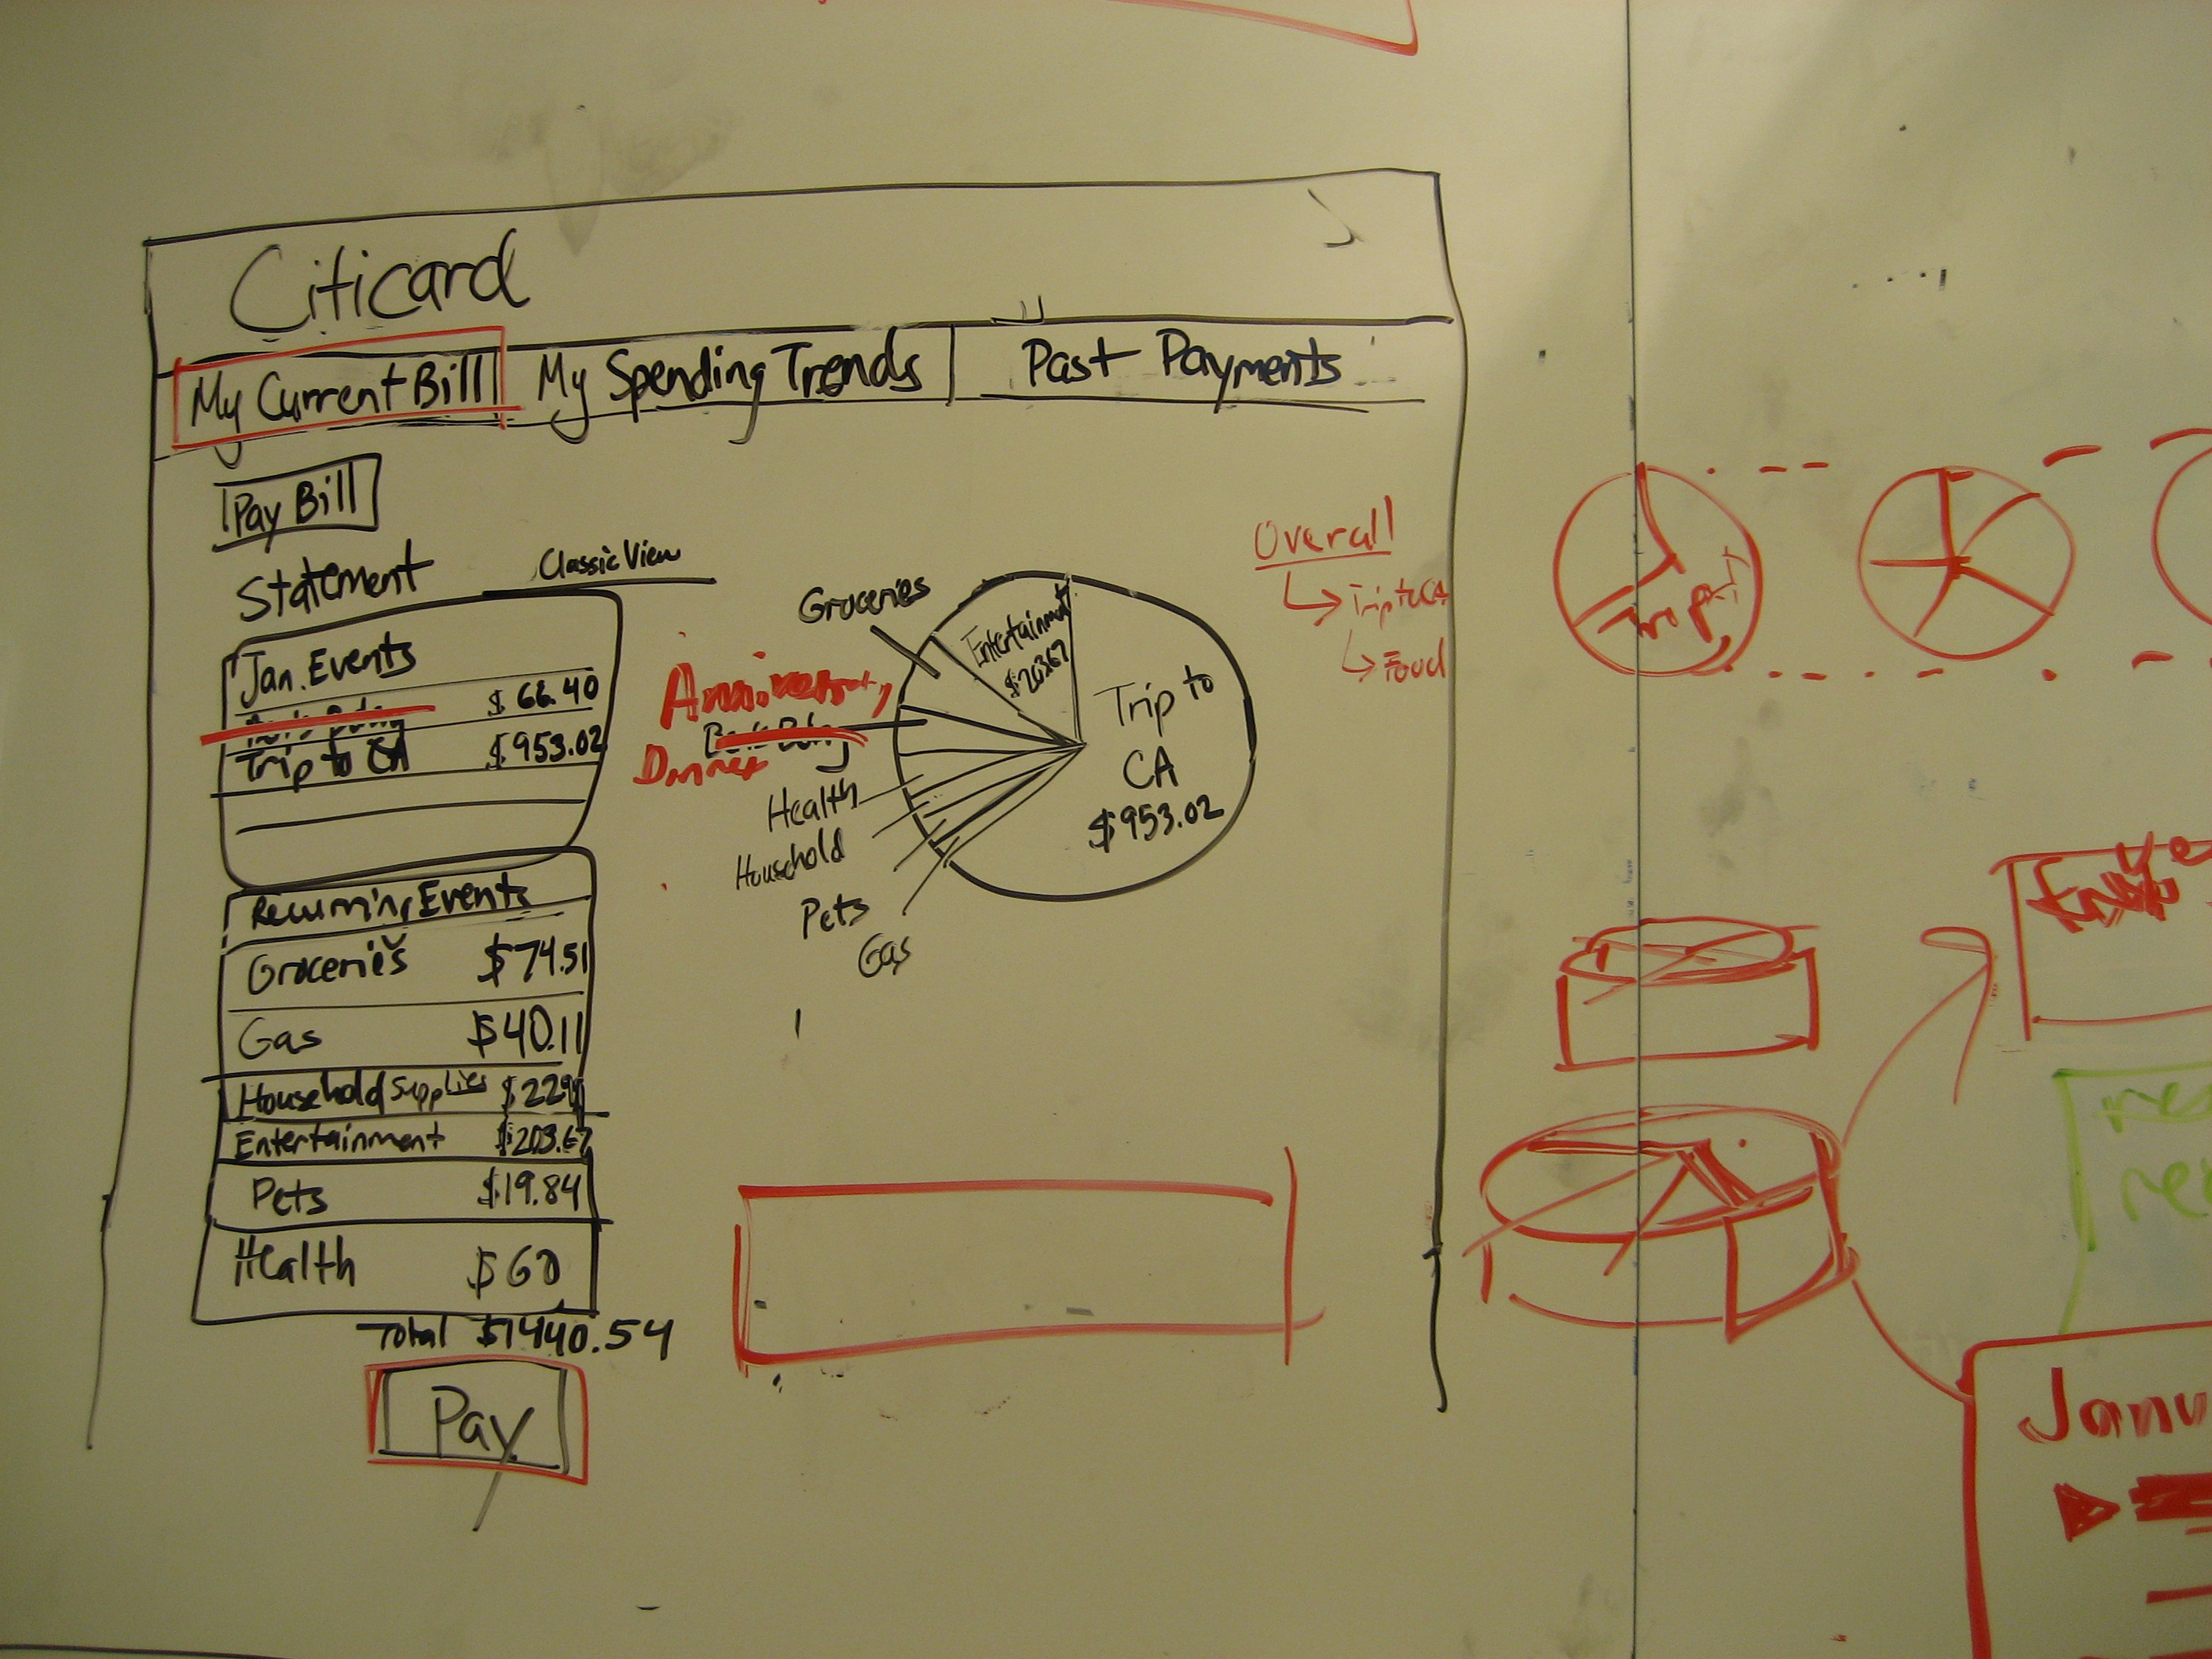 Citicard
My Current Bill
My Spending Trends
Past Payments
Pay Bill
Statement
Classic View
Jan. Events
$66.40
Trip to CA $953.02
Recurring Events
Groceries $74.51
Gas $40.11
Household Supplies
Entertainment $203.67
Pets $19.84
Health $60
Total $1440.54
Pay
Groceries
Entertainment
$203.67
Anniversary
Dinner
Health
Household
Pets
Gas
Trip to
CA
$953.02
Overall
Trip to CA
Food
Trip
Janu